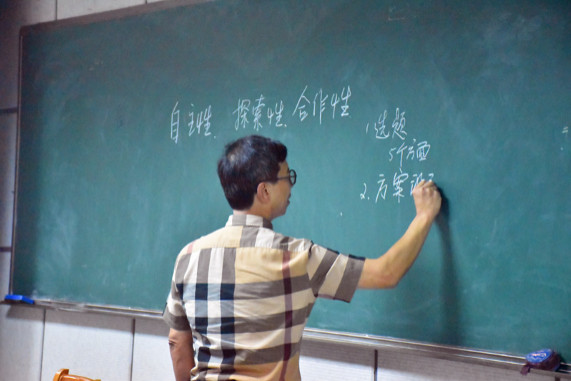 自主性、探索性、合作性
1.选题
5个方面
2.方案